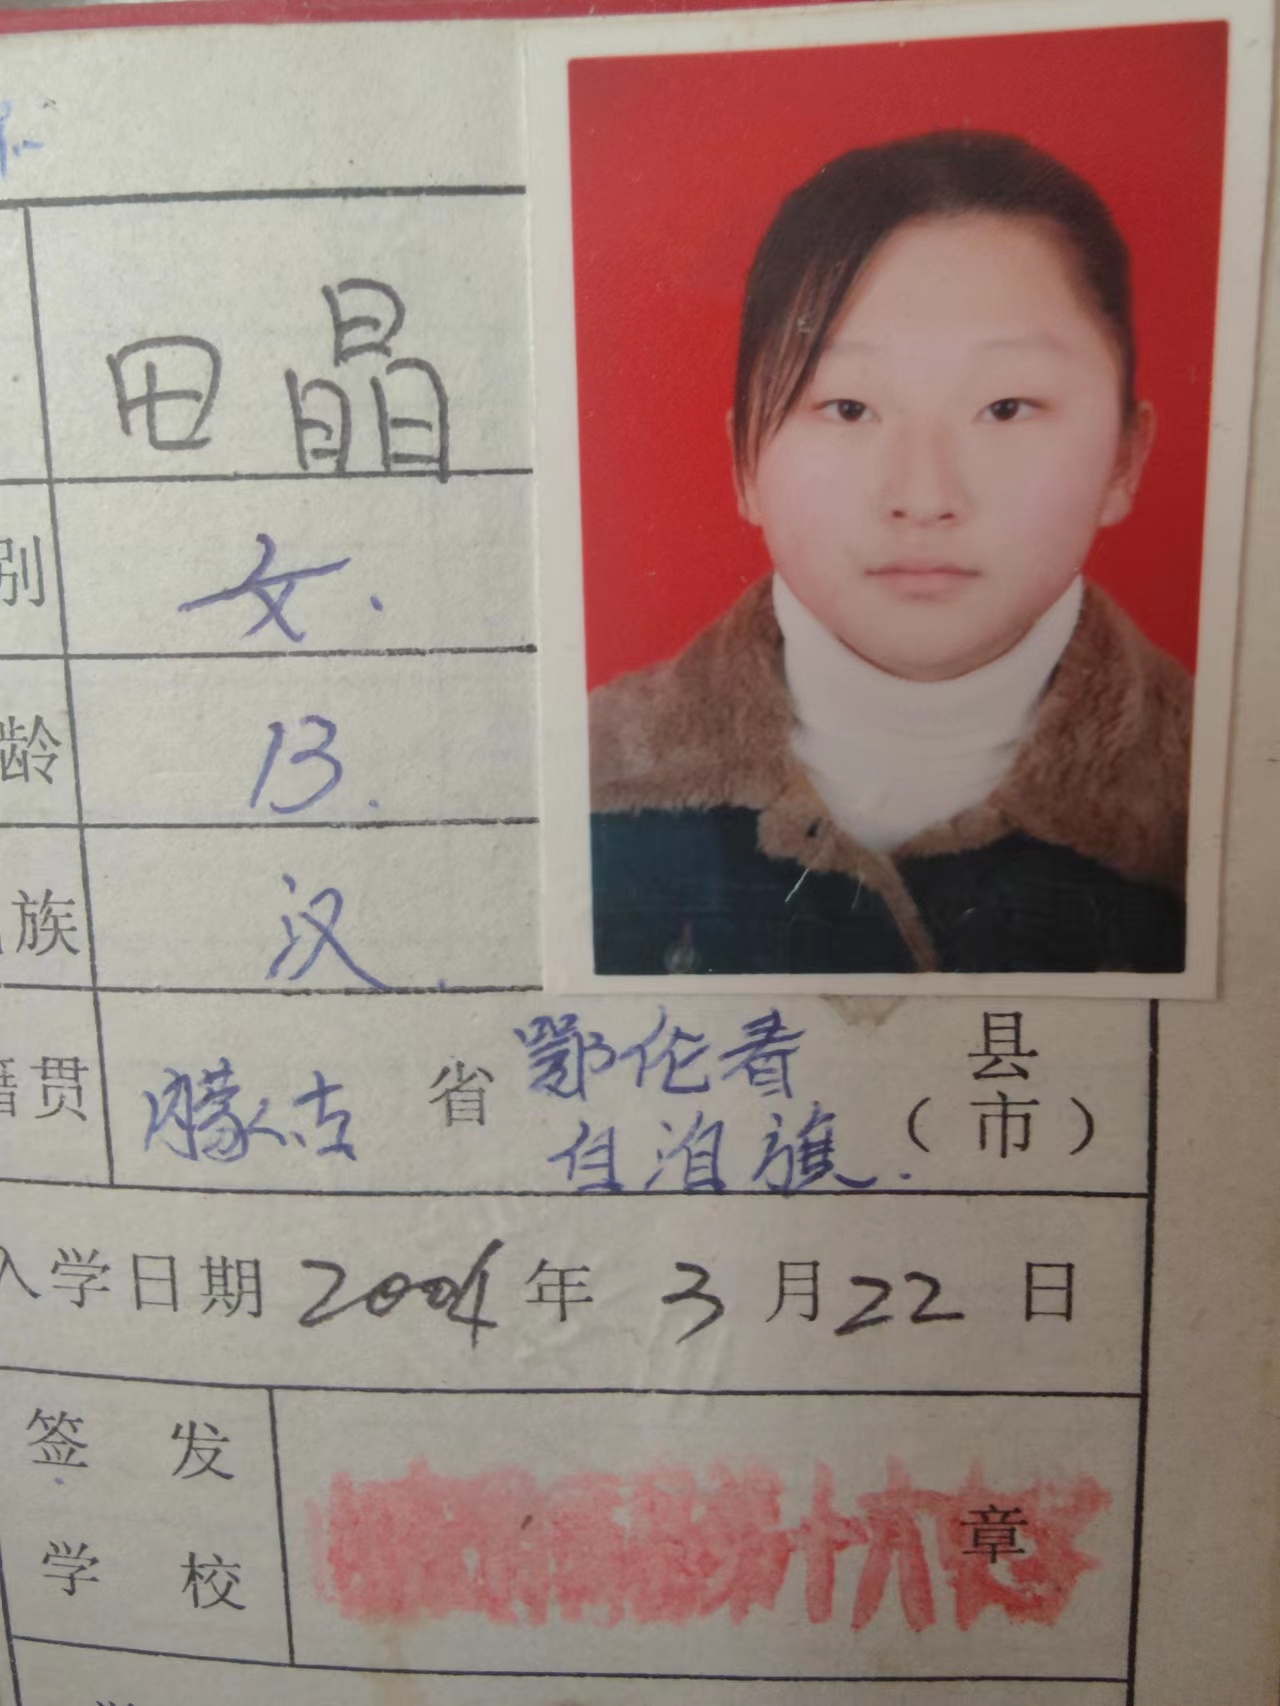 田晶
别 女.
龄 13.
族 汉.
籍贯 内蒙古 省 鄂伦春自治旗. 县(市)
入学日期 2004 年 3 月 22 日
签发学校 章